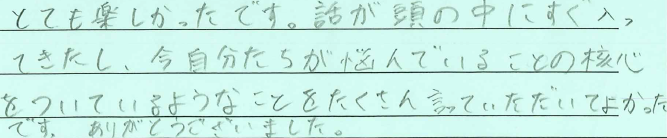 とても楽しかったです。話が頭の中にすぐ入っ
てきたし、今自分たちが悩んでいることの核心
をついているようなことをたくさん言っていただいてよかった
です。ありがとうございました。